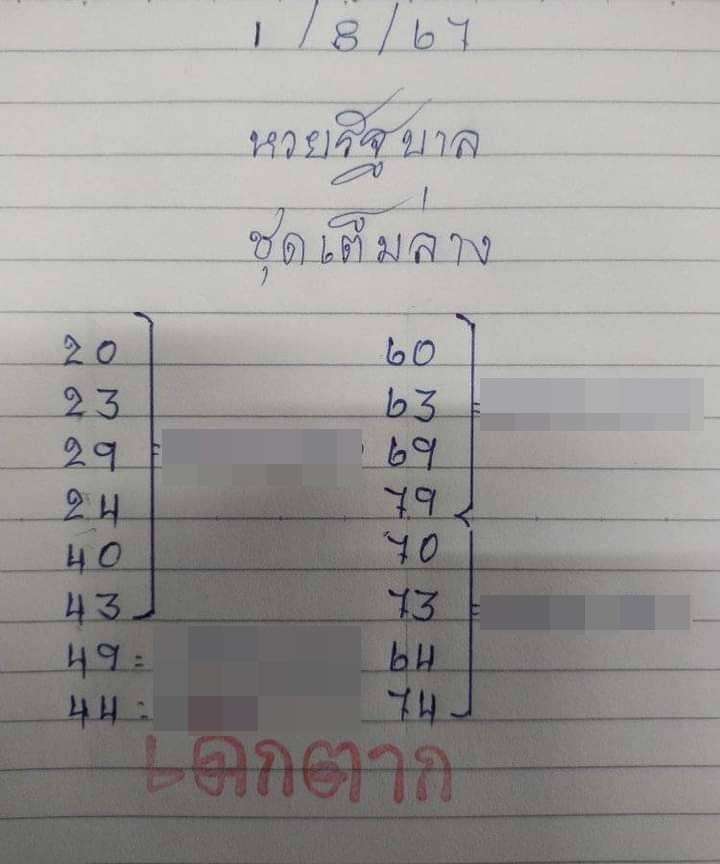 1/8/67
หวยรัฐบาล
ชุดเต็มล่าง
20 60
23 63
29 69
24 79
40 70
43 73
49= 64
44= 74
เอกตาก